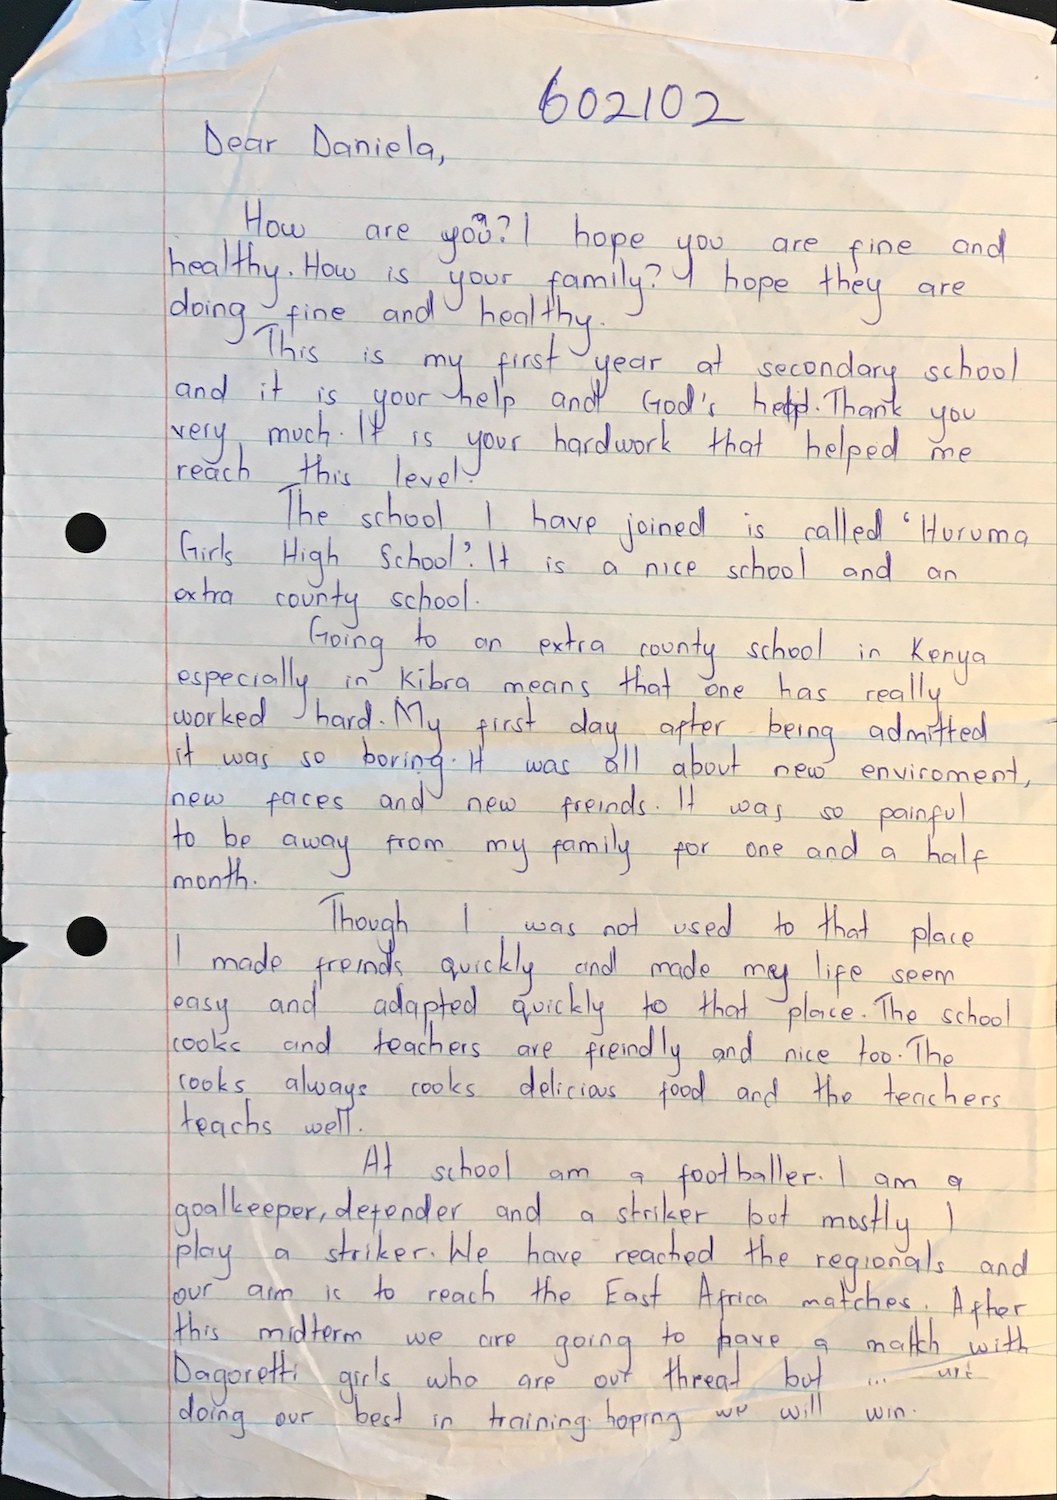 602102
Dear Daniela,
How are you? I hope you are fine and
healthy. How is your family? I hope they are
doing fine and healthy.
This is my first year at secondary school
and it is your help and God's help. Thank you
very much. It is your hardwork that helped me
reach this level.
The school I have joined is called 'Huruma
Girls High School'. It is a nice school and an
extra county school.
Going to an extra county school in Kenya
especially in Kibra means that one has really
worked hard. My first day after being admitted
it was so boring. It was all about new enviroment,
new faces and new freinds. It was so painful
to be away from my family for one and a half
month.
Though I was not used to that place
I made freinds quickly and made my life seem
easy and adapted quickly to that place. The school
cooks and teachers are freindly and nice too. The
cooks always cooks delicious food and the teachers
teachs well.
At school am a footballer. I am a
goalkeeper, defender and a striker but mostly I
play a striker. We have reached the regionals and
our aim is to reach the East Africa matches. After
this midterm we are going to have a match with
Dagoretti girls who are our threat but
doing our best in training hoping we will win.